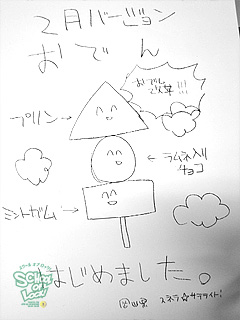 2月バージョン
おでん
おでん
で人気!!!
プリン→
←ラムネ入り
チョコ
ミントガム→
School of Lock!
はじめました。
スネラ☆サテライト!